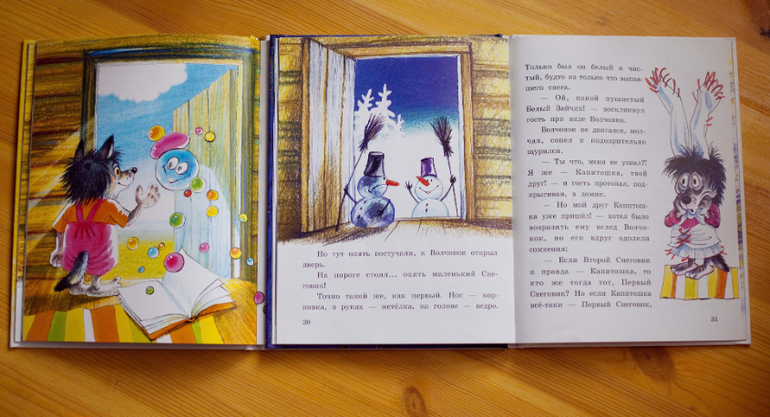 Но тут опять постучали, и Волчонок открыл
дверь.
На пороге стоял... опять маленький Сне-
говик!
Точно такой же, как первый. Нос — мор-
ковка, в руках — метёлка, на голове — ведро.
30
Только был он белый и чис-
тый, будто из только что выпав-
шего снега.
— Ой, какой пушистый
Белый Зайчик! — воскликнул
гость при виде Волчонка.
Волчонок не двигался, мол-
чал, сопел и подозрительно
щурился.
— Ты что, меня не узнал?!
Я же — Капитошка, твой
друг! — и гость протопал, под-
прыгивая, в домик.
— Но мой друг Капитош-
ка уже пришёл! — хотел было
возразить ему вслед Волчо-
нок, но его вдруг одолели
сомнения:
— Если Второй Снеговик
и правда — Капитошка, то
кто же тогда тот, Первый
Снеговик? Но если Капитошка
всё-таки — Первый Снеговик,
31